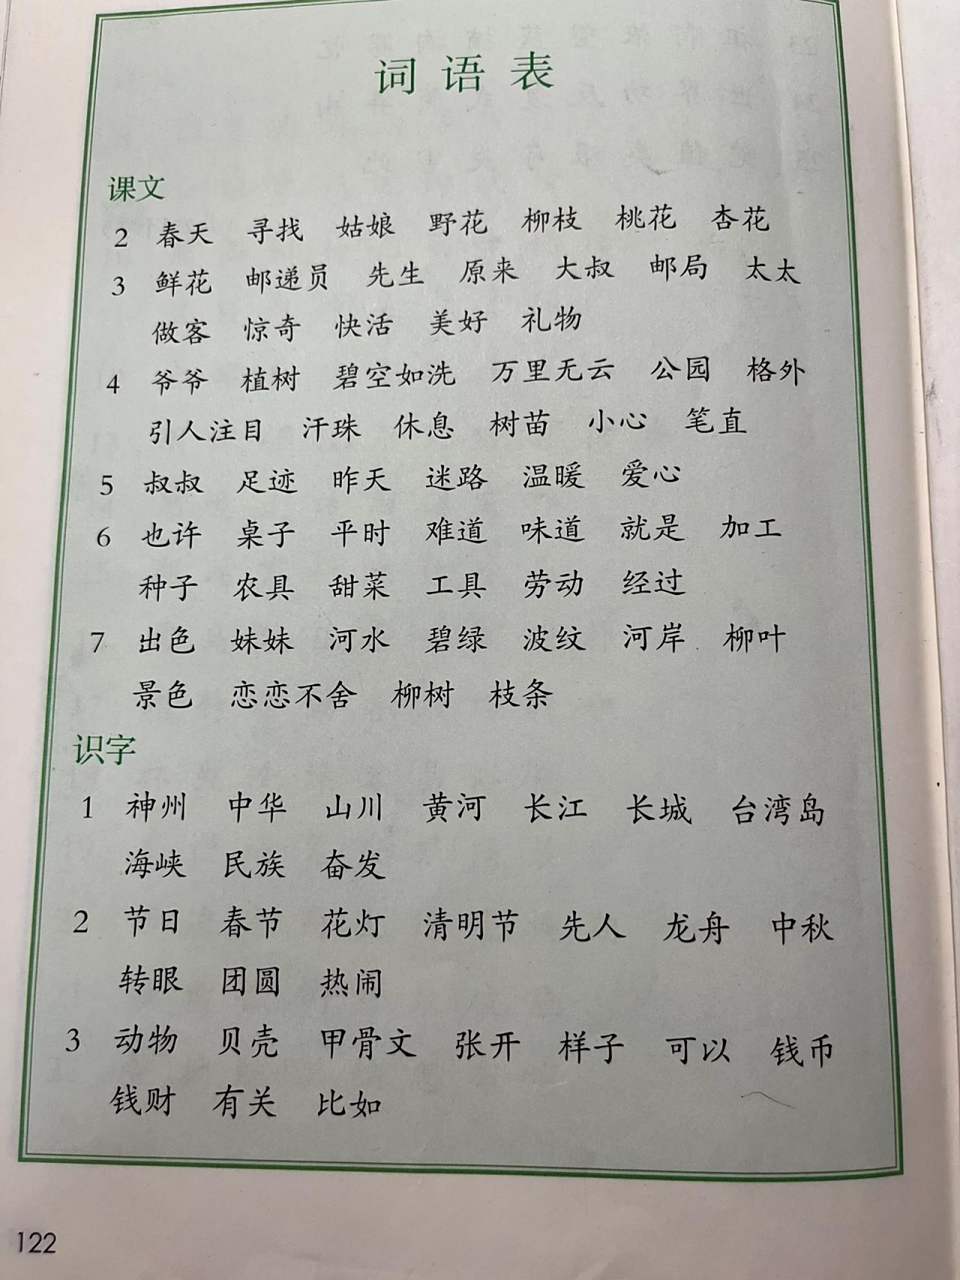 词语表
课文
2 春天 寻找 姑娘 野花 柳枝 桃花 杏花
3 鲜花 邮递员 先生 原来 大叔 邮局 太太
做客 惊奇 快活 美好 礼物
4 爷爷 植树 碧空如洗 万里无云 公园 格外
引人注目 汗珠 休息 树苗 小心 笔直
5 叔叔 足迹 昨天 迷路 温暖 爱心
6 也许 桌子 平时 难道 味道 就是 加工
种子 农具 甜菜 工具 劳动 经过
7 出色 妹妹 河水 碧绿 波纹 河岸 柳叶
景色 恋恋不舍 柳树 枝条
识字
1 神州 中华 山川 黄河 长江 长城 台湾岛
海峡 民族 奋发
2 节日 春节 花灯 清明节 先人 龙舟 中秋
转眼 团圆 热闹
3 动物 贝壳 甲骨文 张开 样子 可以 钱币
钱财 有关 比如
122